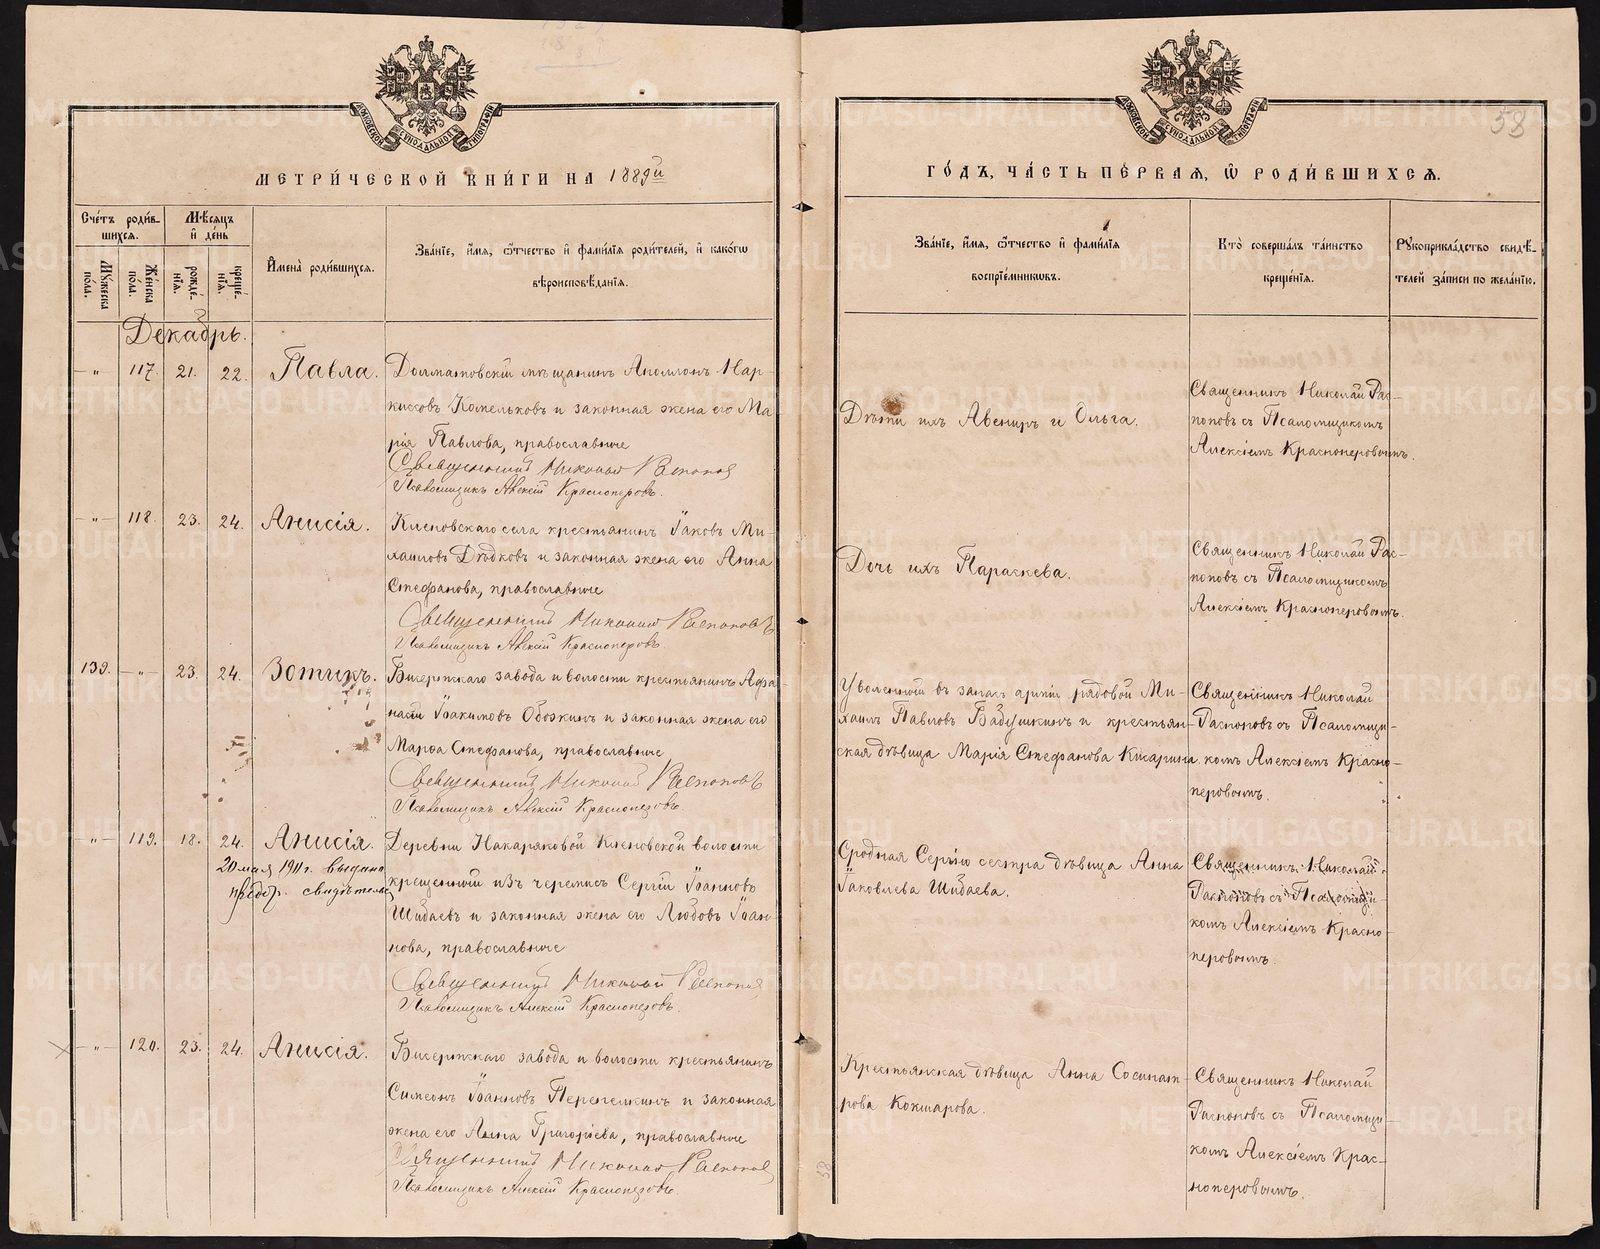 МЕТРИ́ЧЕСКОЙ КНИ́ГИ НА 1889й
Сче́тъ роди́в-
шихся.
Мѣ́сяцъ
и҆ де́нь
Мꙋ́жеска по́ла.
Же́нска по́ла.
рожде́-нїѧ.
креще́-нїѧ.
И҆мена̀ роди́вшихся.
Зва́нїе, и҆́мя, ѻ҆́тчество и҆ фами́лїя роди́телей, и҆ како́гѡ
вѣроисповѣ́данїя.
Декабрь.
— „ — 117. 21. 22. Павла.
Долматовскій мѣщанинъ Аполлонъ Нар-
киссовъ Комельковъ и законная жена его Ма
рія Павлова, православные
Священникъ Николай Распопов
Псаломщикъ Алексій Красноперовъ.
— „ — 118. 23. 24. Анисія.
Кленовскаго села крестьянинъ Іаковъ Ми-
хаиловъ Дѣдковъ и законная жена его Анна
Стефанова, православные
Священникъ Николай Распоповъ
Псаломщикъ Алексій Красноперовъ
139. — „ — 23. 24. Зотикъ.
Бисертскаго завода и волости крестьянинъ Афа
насій Іоакимовъ Обожинъ и законная жена его
Марѳа Стефанова, православные
Священникъ Николай Распоповъ
Псаломщикъ Алексій Красноперовъ
— „ — 119. 18. 24. Анисія.
20 мая 1911 г. выдано
свидѣтельс
Деревни Накаряковой Кленовской волости
крещенный изъ черемисъ Сергій Іоанновъ
Шибаевъ и законная жена его Любовъ Іоан-
нова, православные
Священникъ Николай Распопов
Псаломщикъ Алексій Красноперовъ.
— „ — 120. 23. 24. Анисія.
Бисертскаго завода и волости крестьянинъ
Симеонъ Іоанновъ Перепелкинъ и законная
жена его Анна Григоріева, православные
Священникъ Николай Распопов
Псаломщикъ Алексій Красноперовъ.
58
ГО́ДЪ, ЧА́СТЬ ПЕ́РВАЯ, Ѡ҆ РОДИ́ВШИХСЯ.
Зва́нїе, и҆́мя, ѻ҆́тчество и҆ фами́лїя
воспрїе́мникѡвъ.
Кто̀ соверша́лъ та́инство
креще́нїя.
Рꙋкоприкла́дство свидѣ́-
телей за́писи по жела́нїю.
Дѣти ихъ Авениръ и Ольга.
Священникъ Николай Рас-
поповъ съ Псаломщикомъ
Алексіемъ Красноперовымъ.
Дочь ихъ Параскева.
Священникъ Николай Рас-
поповъ съ Псаломщикомъ
Алексіемъ Красноперовымъ.
Уволенный въ запасъ арміи рядовой Ми-
хаилъ Павловъ Бабушкинъ и крестьян-
ская дѣвица Марія Стефанова Кисарина
Священникъ Николай
Распоповъ съ Псаломщи-
комъ Алексіемъ Красно-
перовымъ.
Сродная Сергію сестра дѣвица Анна
Іаковлева Шибаева.
Священникъ Николай
Распоповъ съ Псаломщи-
комъ Алексіемъ Красно-
перовымъ.
Крестьянская дѣвица Анна Сосипат-
рова Кокшарова.
Священникъ Николай
Распоповъ съ Псаломщи-
комъ Алексіемъ Крас-
ноперовымъ.
58
METRIKI.GASO-URAL.RU